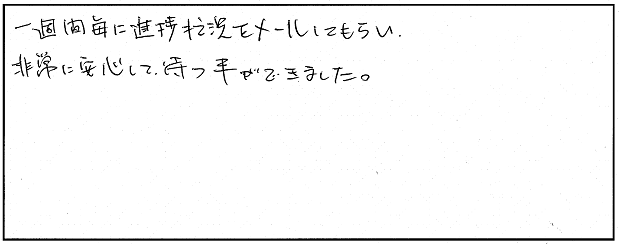 一週間毎に進捗状況をメールしてもらい、
非常に安心して待つ事ができました。